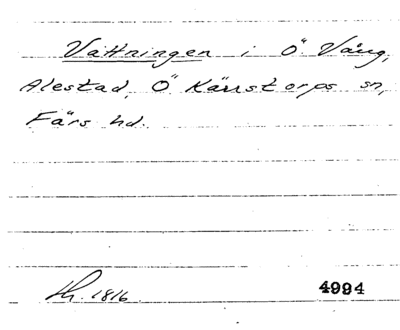 Vättningen i Ö. Vång,
Alestad, Ö Kärrstorps sn,
Färs hd.
1816 4994